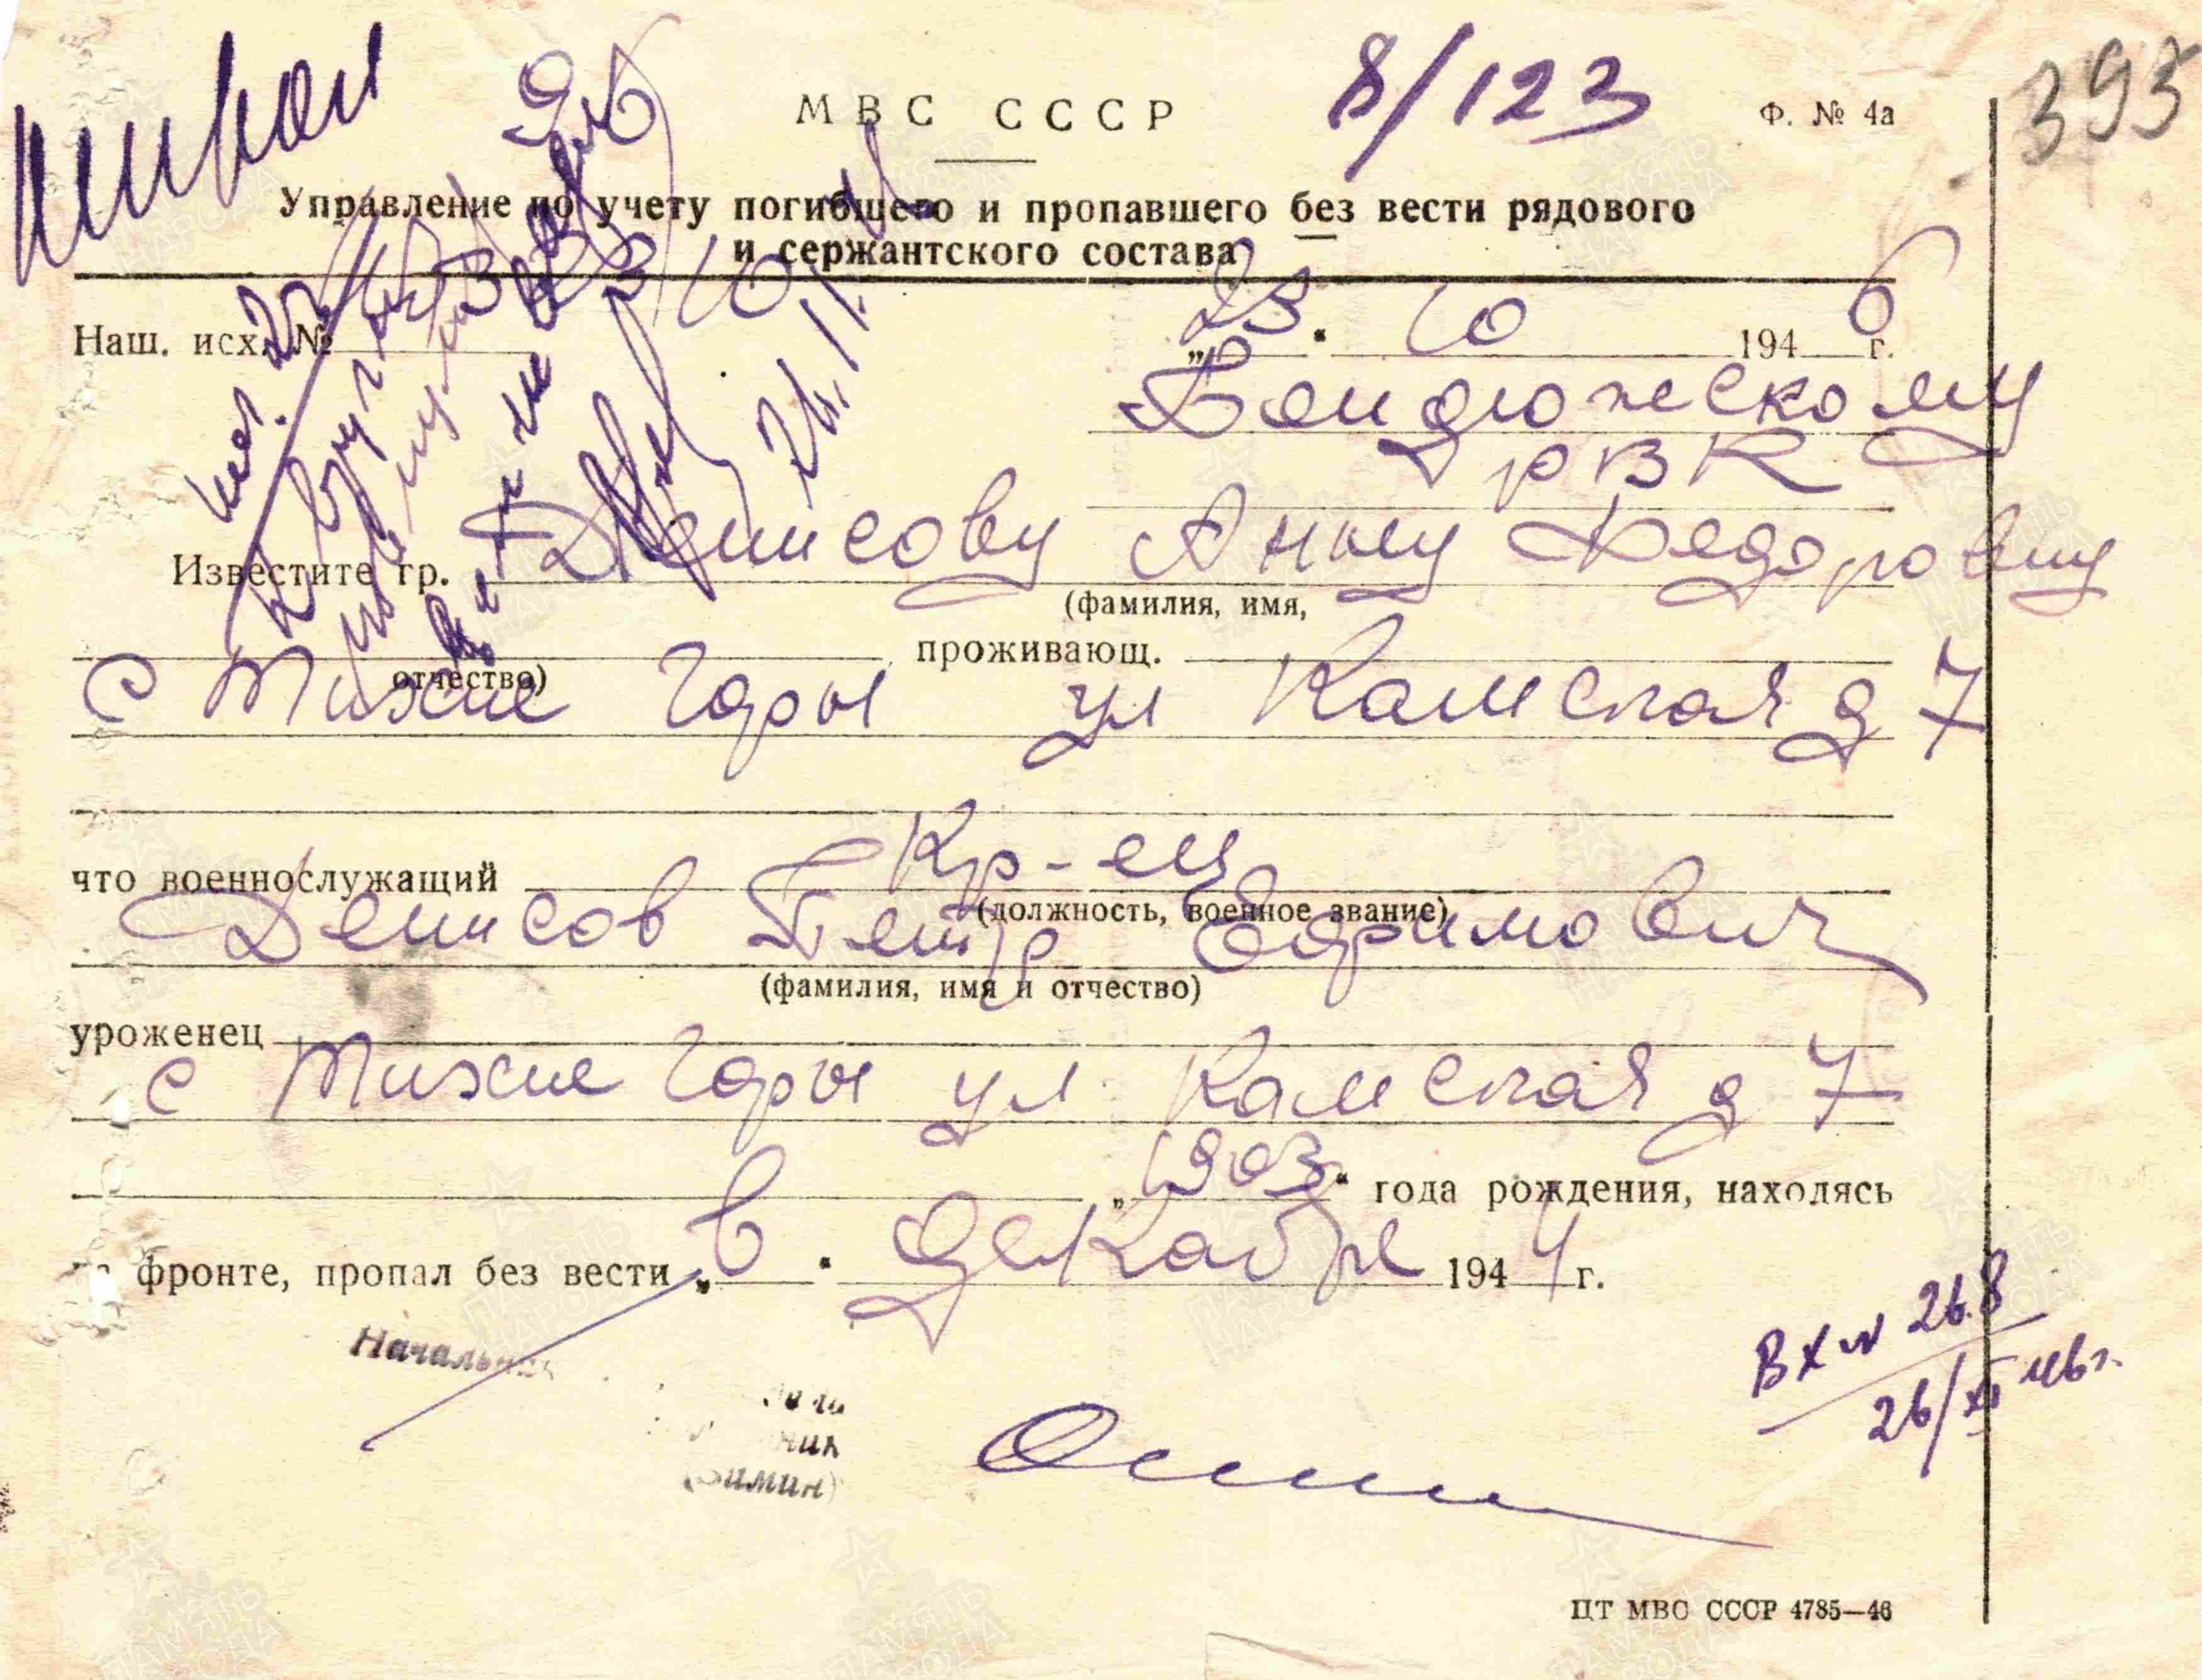 8/123
393
МВС СССР
Ф. № 4а
Управление по учету погибшего и пропавшего без вести рядового
и сержантского состава
Наш. исх. №
„23“ 10 1946 г.
Бондюжскому
РВК
Известите гр. Денисову Анну Федоровну
(фамилия, имя,
проживающ.
отчество)
с Тихие Горы ул Камская д 7
Кр-ец
что военнослужащий
(должность, военное звание)
Денисов Петр Ефимович
(фамилия, имя и отчество)
уроженец
с Тихие Горы ул Камская д 7
„1903“ года рождения, находясь
фронте, пропал без вести „в“ декабре 1944 г.
Начальник
(Зимин)
Вх № 268
26/XI 46 г.
ЦТ МВС СССР 4785—46